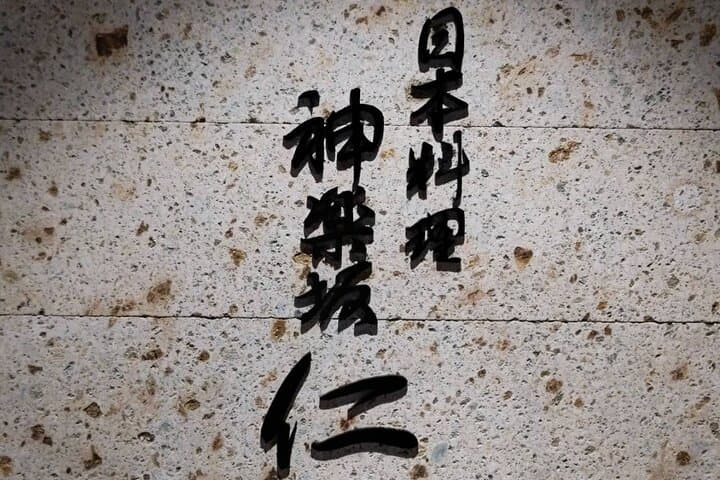 日本料理
神楽坂
仁